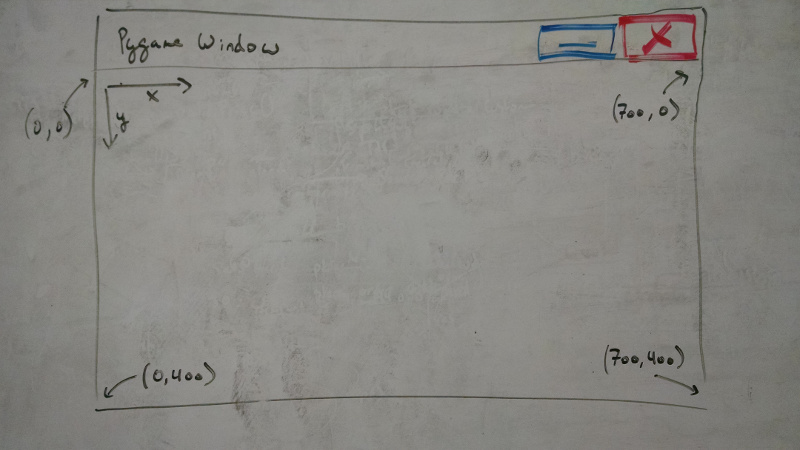 Pygame Window
x
y
(0,0)
(700,0)
(0,400)
(700,400)